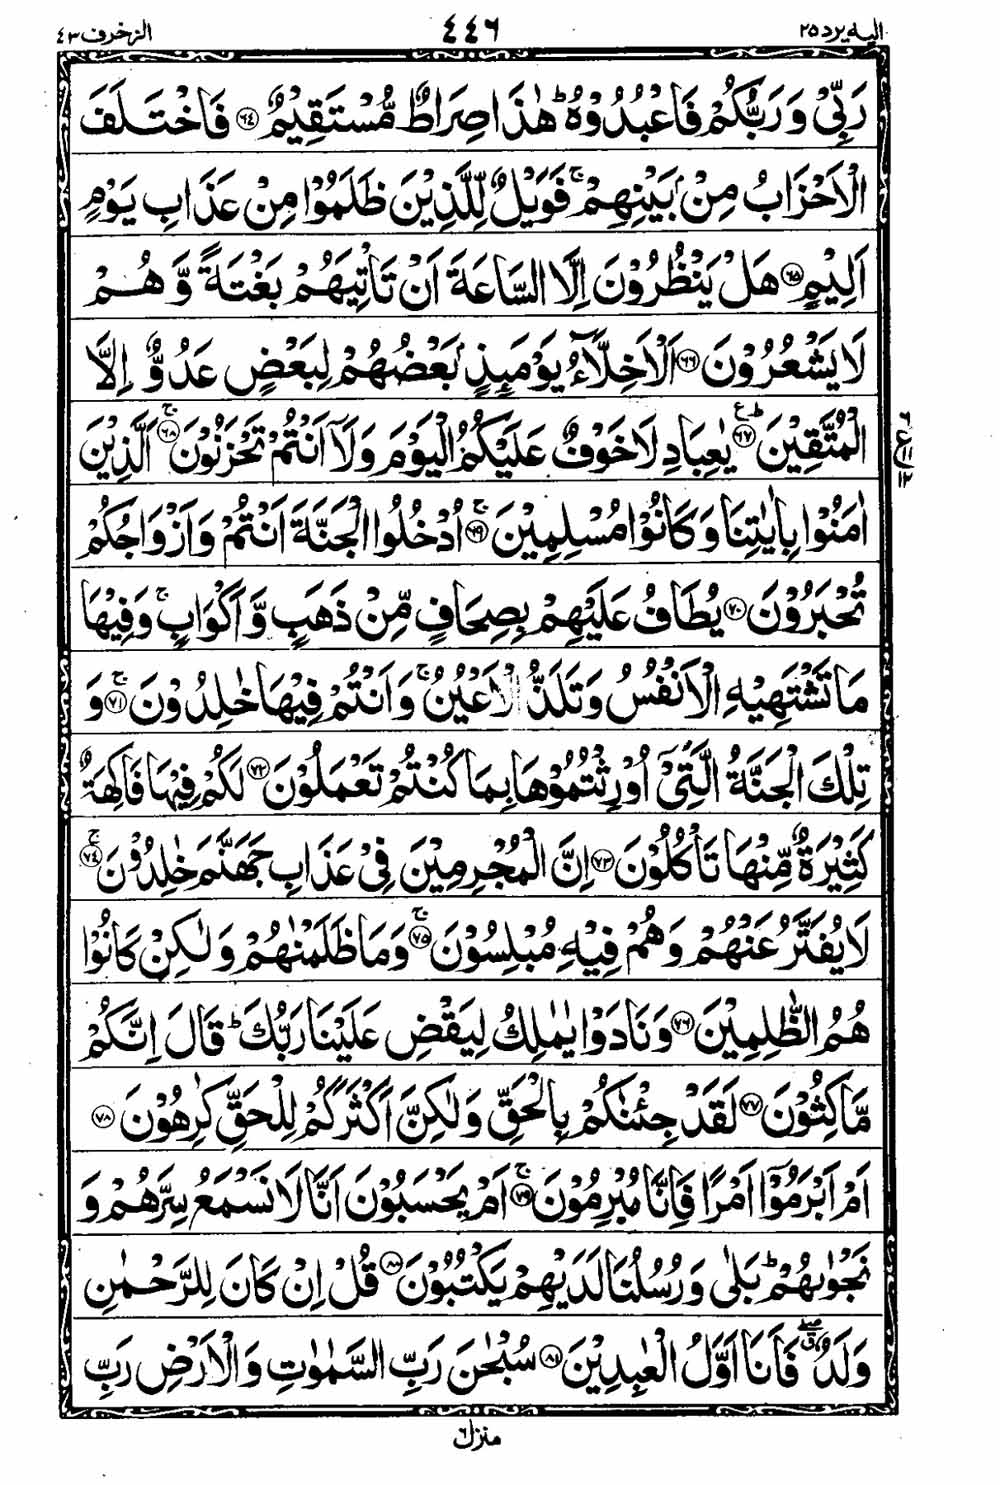 الیه یرد ۲۵ ٤٤٦ الزخرف ٤٣
رَبِّیْ وَرَبُّكُمْ فَاعْبُدُوْهُ ؕ هٰذَا صِرَاطٌ مُّسْتَقِیْمٌ ﴿٦٤﴾ فَاخْتَلَفَ
الْاَحْزَابُ مِنْۢ بَیْنِهِمْ ۚ فَوَیْلٌ لِّلَّذِیْنَ ظَلَمُوْا مِنْ عَذَابِ یَوْمٍ
اَلِیْمٍ ﴿٦٥﴾ هَلْ یَنْظُرُوْنَ اِلَّا السَّاعَةَ اَنْ تَاْتِیَهُمْ بَغْتَةً وَّ هُمْ
لَا یَشْعُرُوْنَ ﴿٦٦﴾ اَلْاَخِلَّآءُ یَوْمَىِٕذٍۭ بَعْضُهُمْ لِبَعْضٍ عَدُوٌّ اِلَّا
الْمُتَّقِیْنَ ﴿٦٧﴾ؕ ع یٰعِبَادِ لَا خَوْفٌ عَلَیْكُمُ الْیَوْمَ وَلَاۤ اَنْتُمْ تَحْزَنُوْنَ ﴿٦٨﴾ۚ اَلَّذِیْنَ
اٰمَنُوْا بِاٰیٰتِنَا وَكَانُوْا مُسْلِمِیْنَ ﴿٦٩﴾ۚ اُدْخُلُوا الْجَنَّةَ اَنْتُمْ وَاَزْوَاجُكُمْ
تُحْبَرُوْنَ ﴿٧٠﴾ یُطَافُ عَلَیْهِمْ بِصِحَافٍ مِّنْ ذَهَبٍ وَّاَكْوَابٍ ۚ وَفِیْهَا
مَا تَشْتَهِیْهِ الْاَنْفُسُ وَتَلَذُّ الْاَعْیُنُ ۚ وَاَنْتُمْ فِیْهَا خٰلِدُوْنَ ﴿٧١﴾ۚ وَ
تِلْكَ الْجَنَّةُ الَّتِیْۤ اُوْرِثْتُمُوْهَا بِمَا كُنْتُمْ تَعْمَلُوْنَ ﴿٧٢﴾ لَكُمْ فِیْهَا فَاكِهَةٌ
كَثِیْرَةٌ مِّنْهَا تَاْكُلُوْنَ ﴿٧٣﴾ اِنَّ الْمُجْرِمِیْنَ فِیْ عَذَابِ جَهَنَّمَ خٰلِدُوْنَ ﴿٧٤﴾ۚ
لَا یُفَتَّرُ عَنْهُمْ وَهُمْ فِیْهِ مُبْلِسُوْنَ ﴿٧٥﴾ۚ وَمَا ظَلَمْنٰهُمْ وَلٰكِنْ كَانُوْا
هُمُ الظّٰلِمِیْنَ ﴿٧٦﴾ وَنَادَوْا یٰمٰلِكُ لِیَقْضِ عَلَیْنَا رَبُّكَ ؕ قَالَ اِنَّكُمْ
مّٰكِثُوْنَ ﴿٧٧﴾ لَقَدْ جِئْنٰكُمْ بِالْحَقِّ وَلٰكِنَّ اَكْثَرَكُمْ لِلْحَقِّ كٰرِهُوْنَ ﴿٧٨﴾
اَمْ اَبْرَمُوْۤا اَمْرًا فَاِنَّا مُبْرِمُوْنَ ﴿٧٩﴾ۚ اَمْ یَحْسَبُوْنَ اَنَّا لَا نَسْمَعُ سِرَّهُمْ وَ
نَجْوٰىهُمْ ؕ بَلٰی وَرُسُلُنَا لَدَیْهِمْ یَكْتُبُوْنَ ﴿٨٠﴾ قُلْ اِنْ كَانَ لِلرَّحْمٰنِ
وَلَدٌ ۖق فَاَنَا اَوَّلُ الْعٰبِدِیْنَ ﴿٨١﴾ سُبْحٰنَ رَبِّ السَّمٰوٰتِ وَالْاَرْضِ رَبِّ
٦
ع ١١
١٢
منزل ٦